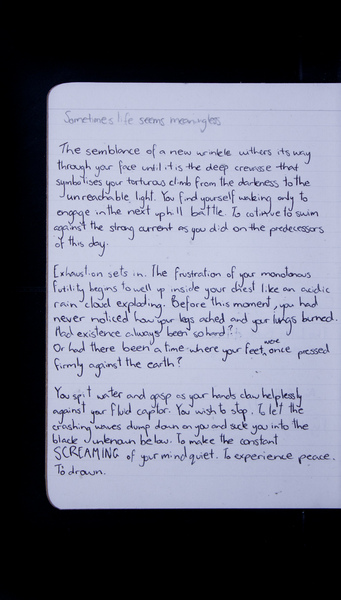 Sometimes life seems meaningless
The semblance of a new wrinkle withers its way
through your face until it is the deep crevasse that
symbolises your torturous climb from the darkness to the
unreachable light. You find yourself waking only to
engage in the next uphill battle. To continue to swim
against the strong current as you did on the predecessors
of this day.
Exhaustion sets in. The frustration of your monotonous
futility begins to well up inside your chest like an acidic
rain cloud exploding. Before this moment, you had
never noticed how your legs ached and your lungs burned.
Had existence always been so hard?
Or had there been a time where your feet were once pressed
firmly against the earth?
You spit water and gasp as your hands claw helplessly
against your fluid captor. You wish to stop. To let the
crashing waves dump down on you and suck you into the
black unknown below. To make the constant
SCREAMING of your mind quiet. To experience peace.
To drown.